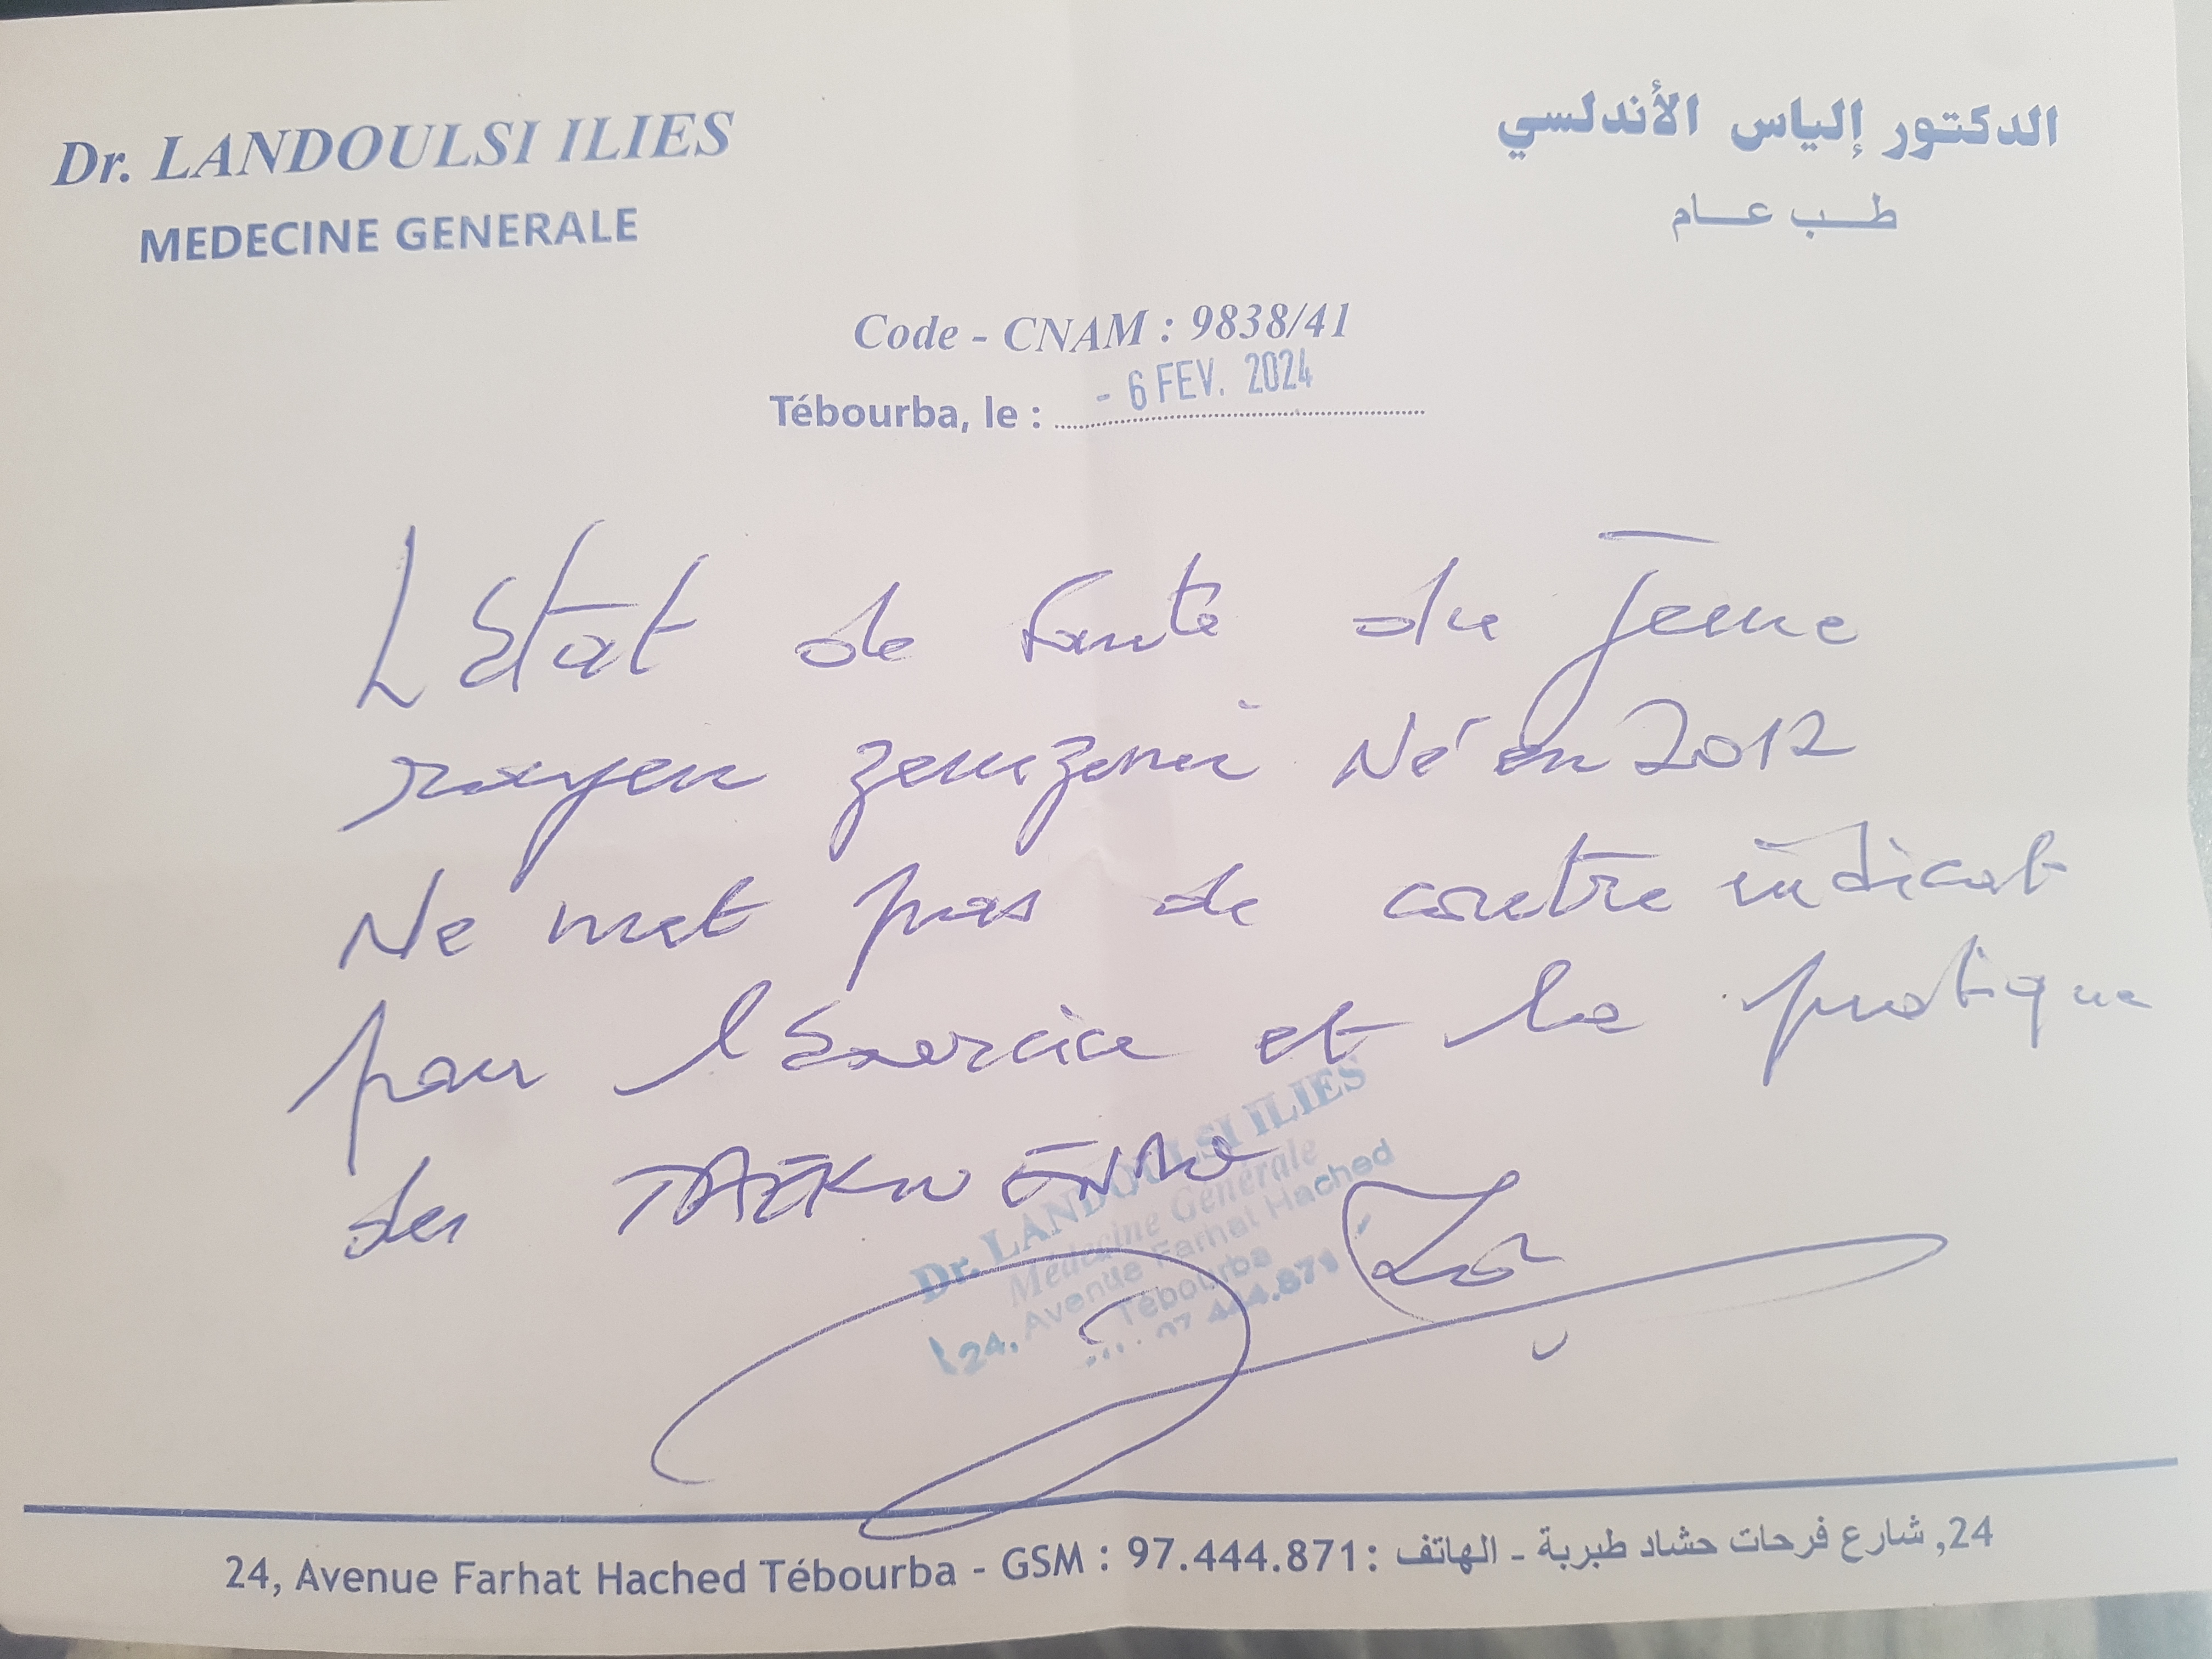 Dr. LANDOULSI ILIES
MEDECINE GENERALE
الدكتور إلياس الأندلسي
طب عام
Code - CNAM : 9838/41
Tébourba, le : - 6 FEV. 2024
L'état de santé du jeune
rayen zemzemi Né en 2012
Ne met pas de contre indicat
pour l'exercice et la pratique
du
Dr. LANDOULSI ILIES
Médecine Générale
24, Avenue Farhat Hached
Tébourba
97.444.871
24, Avenue Farhat Hached Tébourba - GSM : 97.444.871 : الهاتف - 24, شارع فرحات حشاد طبربة